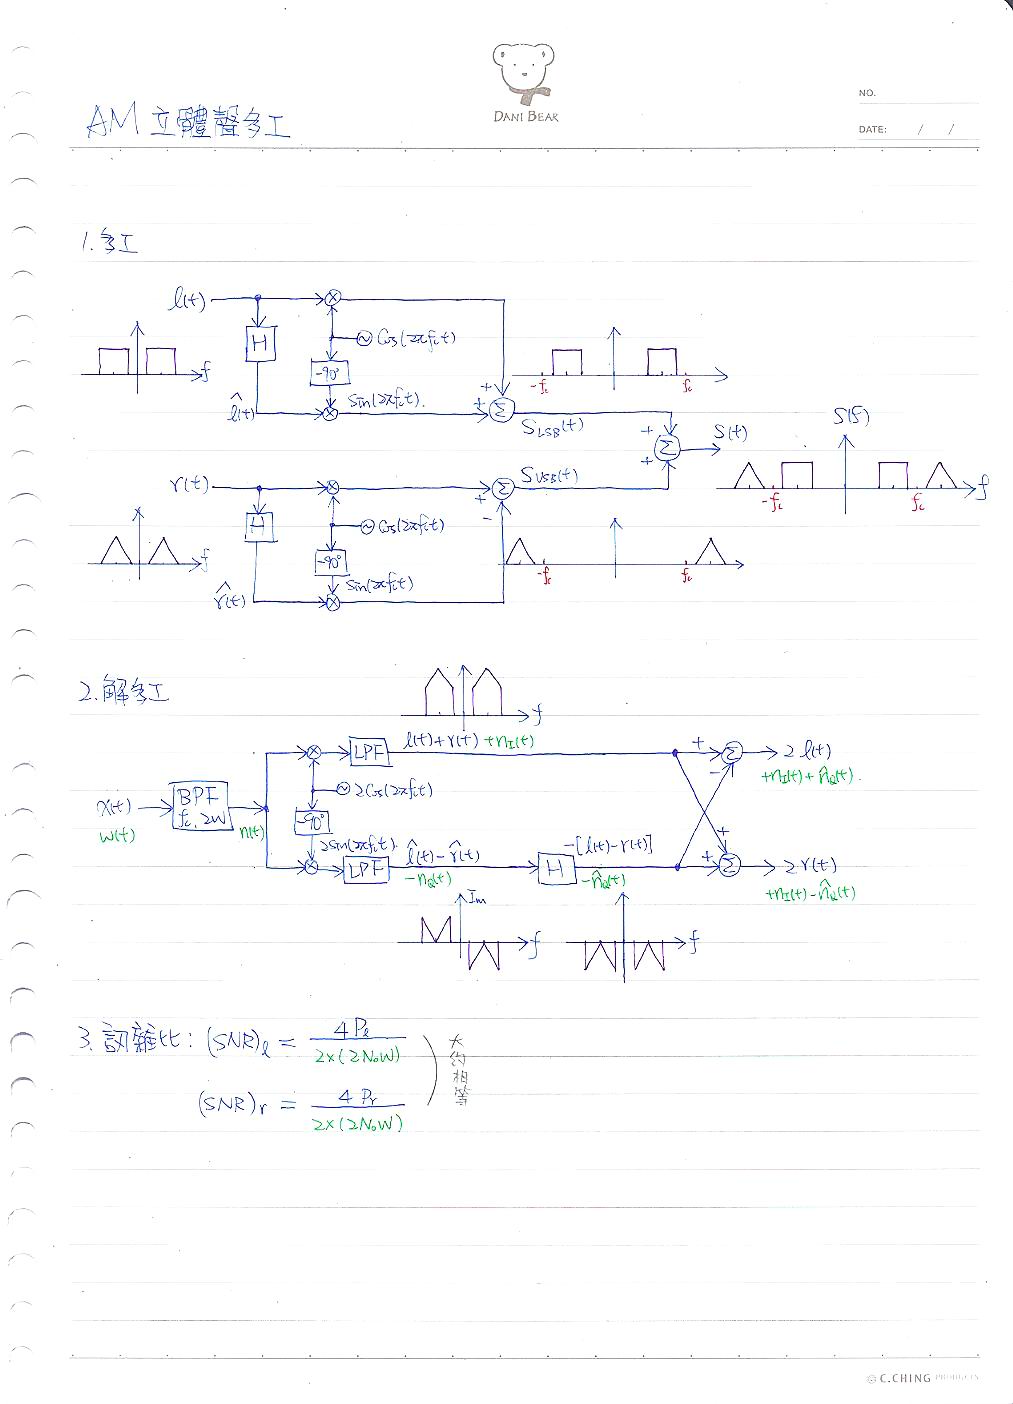 DANI BEAR
NO.
DATE: / /
AM 立體聲多工
1. 多工
l(t)
H
~ Cos(2πfct)
-90°
Sin(2πfct).
l̂(t)
f
-fc fc
Σ
S_LSB(t)
S(t)
S(f)
-fc fc f
r(t)
H
~ Cos(2πfct)
-90°
Sin(2πfct)
r̂(t)
f
Σ
S_USB(t)
-fc fc
2. 解多工
f
l(t)+r(t) +n_I(t)
x(t)
w(t)
BPF
fc, 2W
n(t)
LPF
~ 2Cos(2πfct)
-90°
2Sin(2πfct).
LPF
l̂(t) - r̂(t)
-n_Q(t)
H
-[l(t)-r(t)]
-n̂_Q(t)
Σ
2 l(t)
+n_I(t)+n̂_Q(t).
Σ
2 r(t)
+n_I(t)-n̂_Q(t)
Im
f
f
3. 訊雜比: (SNR)_l = 4P_l / 2×(2N₀W)
(SNR)_r = 4P_r / 2×(2N₀W)
大約相等
© C.CHING PRODUCTS